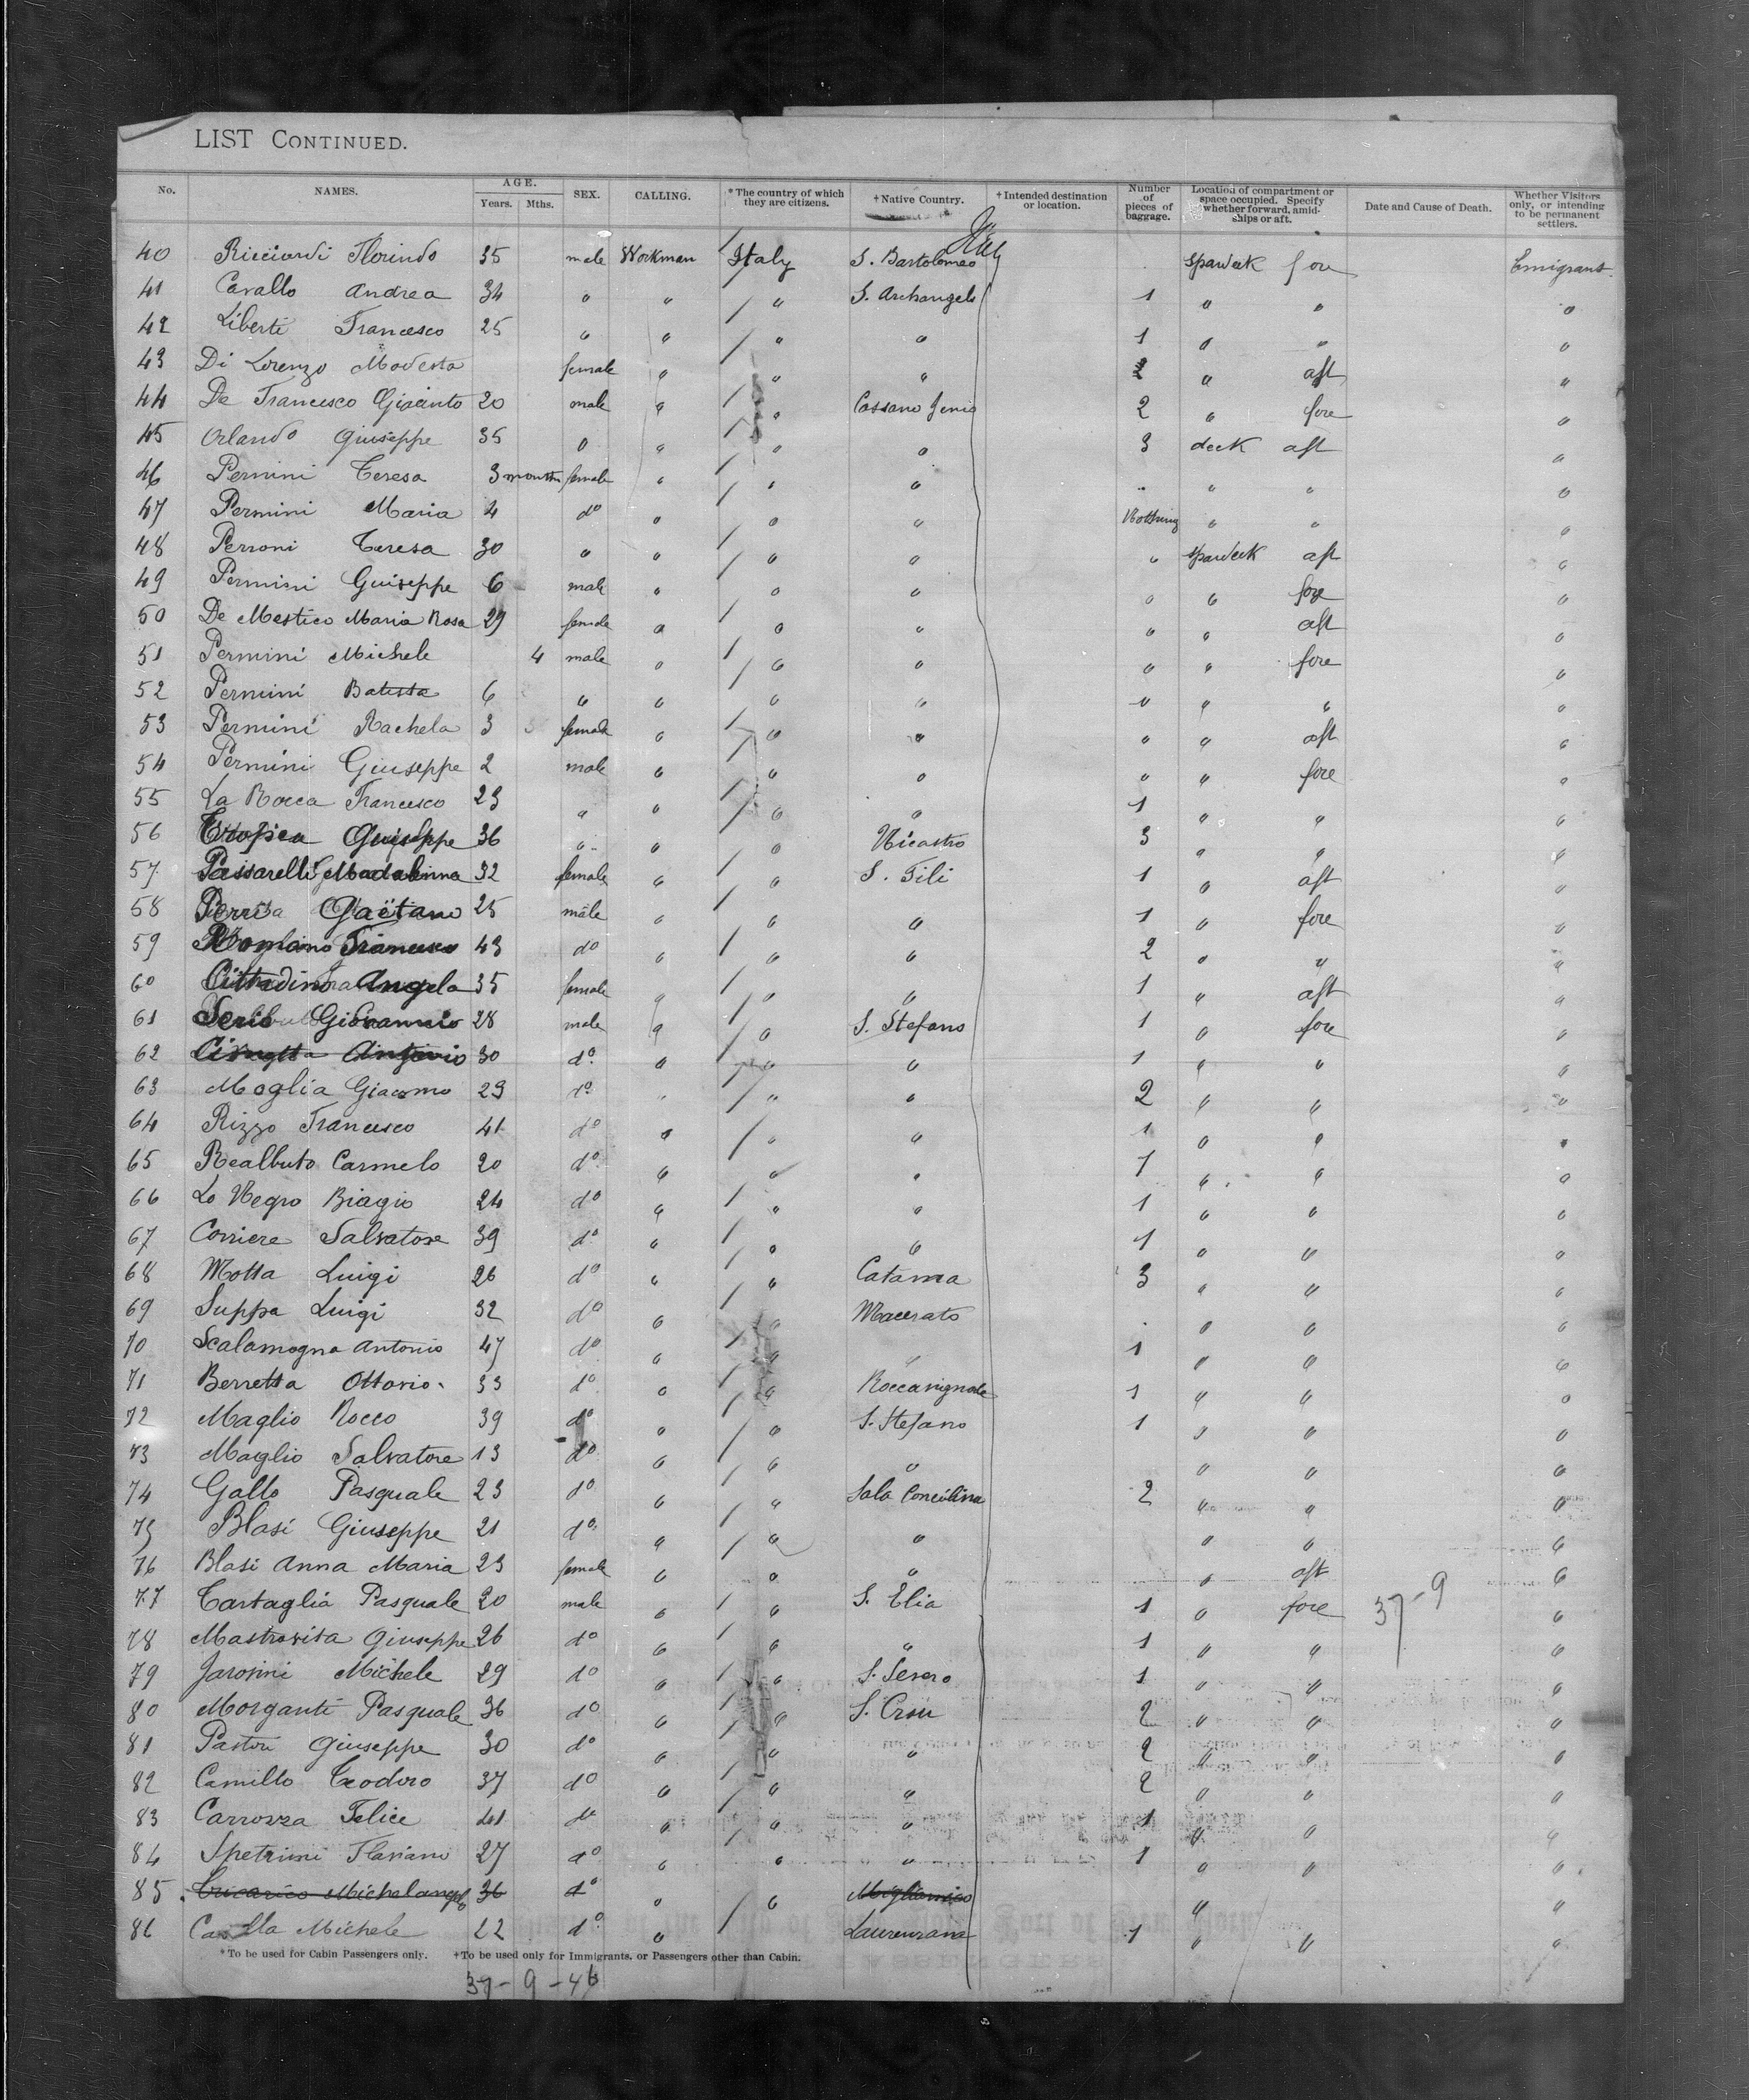 LIST CONTINUED.
No. NAMES. AGE. Years. Mths. SEX. CALLING. *The country of which they are citizens. †Native Country. †Intended destination or location. Number of pieces of baggage. Location of compartment or space occupied. Specify whether forward, amidships or aft. Date and Cause of Death. Whether Visitors only, or intending to be permanent settlers.
40 Ricciardi Florindo 35 male Workman Italy S. Bartolomeo spardeck fore Emigrant
41 Cavallo Andrea 34 " " " S. Archangelo 1 " " "
42 Liberti Francesco 25 " " " " 1 " " "
43 Di Lorenzo Modesta female " " " 2 " aft "
44 De Francesco Giacinto 20 male " " Cassano 2 " fore "
45 Orlando Giuseppe 35 " " " " 3 deck aft "
46 Permini Teresa 3 months female " " " " " "
47 Permini Maria 4 do " " " Nothing " " "
48 Perroni Teresa 30 " " " " " spardeck aft "
49 Permini Guiseppe 6 male " " " " " fore "
50 De Mestico Maria Rosa 29 female " " " " " aft "
51 Permini Michele 4 male " " " " " fore "
52 Permini Batista 6 " " " " " " " "
53 Permini Rachela 3 female " " " " " aft "
54 Permini Giuseppe 2 male " " " " " fore "
55 La Rocca Francesco 23 " " " " 1 " " "
56 Tropea Guiseppe 36 " " " Nicastro 3 " " "
57 Passarelli Madalinna 32 female " " S. Fili 1 " aft "
58 Perrisa Gaëtano 25 male " " " 1 " fore "
59 Francesco 43 do " " " 2 " " "
60 Cittadino Angela 35 female " " " 1 " aft "
61 Giovannio 28 male " " S. Stefano 1 " fore "
62 Antonio 30 do " " " 1 " " "
63 Moglia Giacomo 29 do " " " 2 " " "
64 Rizzo Francesco 41 do " " " 1 " " "
65 Realbuto Carmelo 20 do " " " 1 " " "
66 Lo Negro Biagio 24 do " " " 1 " " "
67 Corriere Salvatore 39 do " " " 1 " " "
68 Motta Luigi 26 do " " Catania 3 " " "
69 Suppa Luigi 32 do " " Macerato " " "
70 Scalamogna Antonio 47 do " " " 1 " " "
71 Berretta Ottavio 33 do " " Roccavignale 1 " " "
72 Maglio Rocco 39 do " " S. Stefano 1 " " "
73 Maglio Salvatore 13 do " " " " " "
74 Gallo Pasquale 23 do " " Sala Concilina 2 " " "
75 Blasi Giuseppe 21 do " " " " " "
76 Blasi Anna Maria 23 female " " " " aft "
77 Tartaglia Pasquale 20 male " " S. Elia 1 " fore 37-9 "
78 Mastrovita Giuseppe 26 do " " " 1 " " "
79 Jarosini Michele 29 do " " S. Severo 1 " " "
80 Morganti Pasquale 36 do " " S. Orsu 2 " " "
81 Pastori Giuseppe 30 do " " " 2 " " "
82 Camillo Teodoro 37 do " " " 2 " " "
83 Carrozza Felice 41 do " " " 1 " " "
84 Spetrini Flaviano 27 do " " " 1 " " "
85 Tricarico Michelangelo 36 do " " Miglionico " "
86 Michele 22 do " Laurenzana 1 " " "
*To be used for Cabin Passengers only. †To be used only for Immigrants, or Passengers other than Cabin.
37-9-46